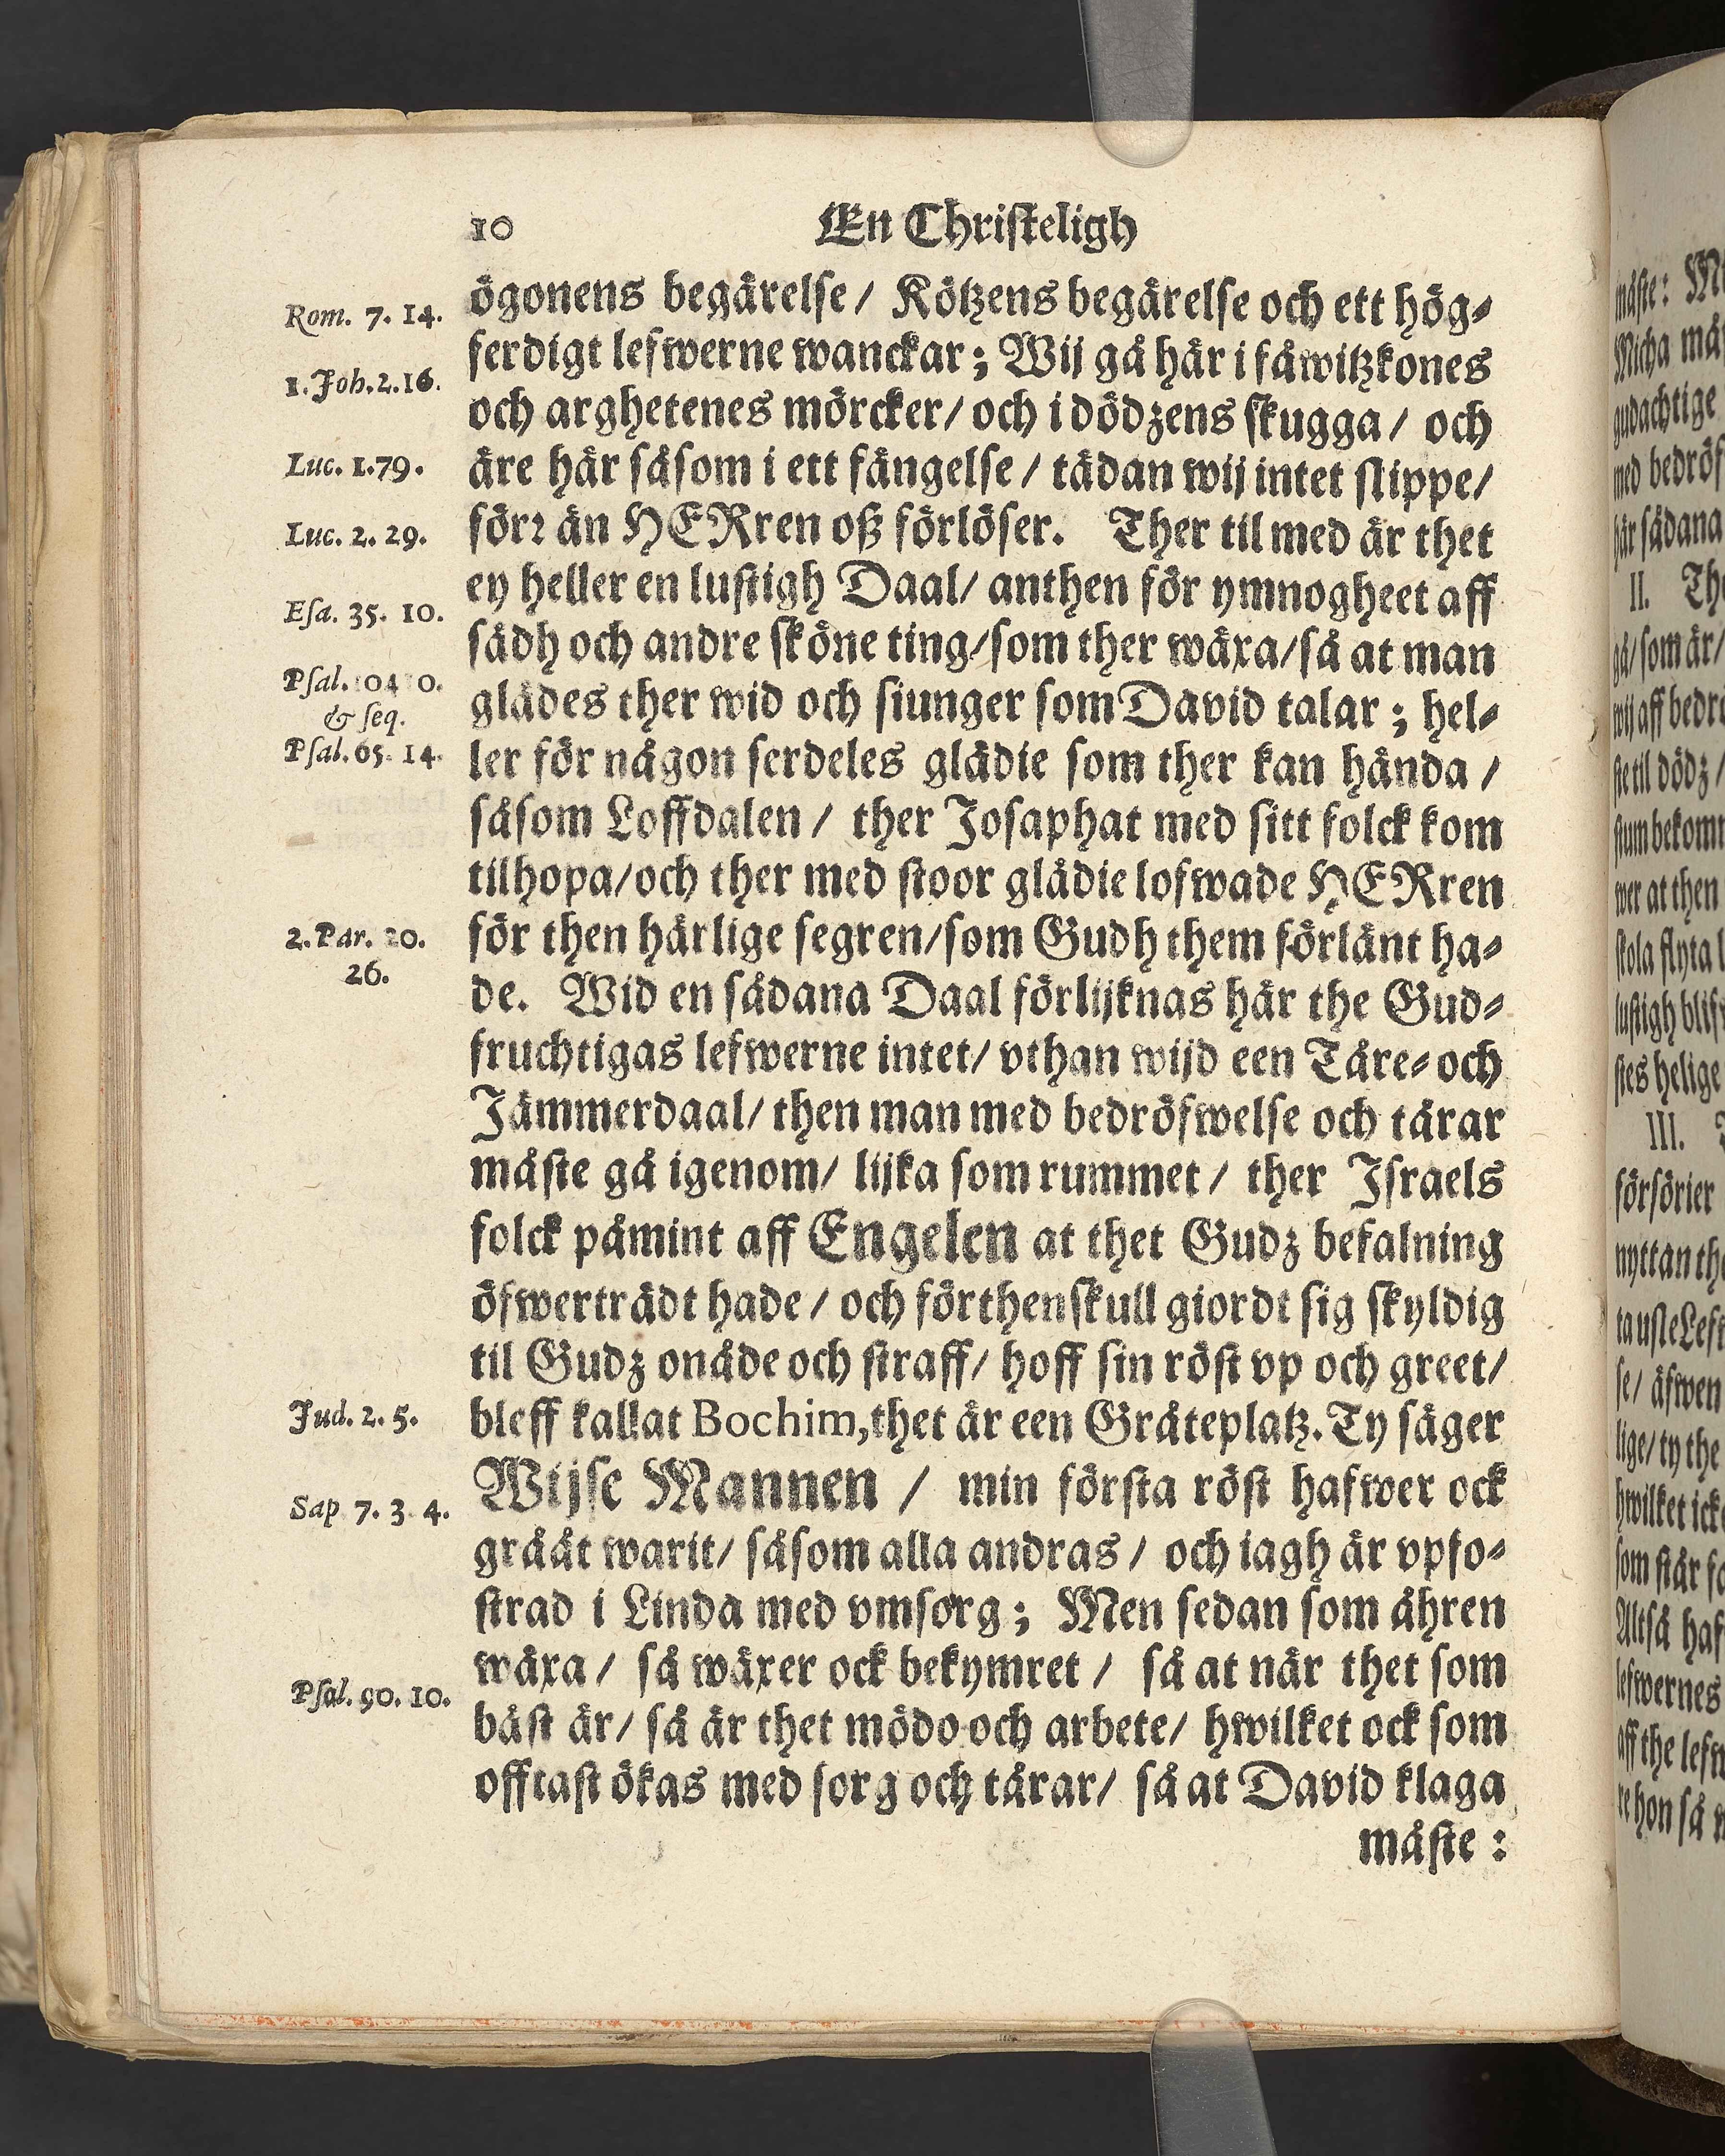 10 En Chriſteligh
ögonens begärelſe / Kötzens begärelſe och ett hög⸗
ferdigt lefwerne wanckar; Wij gå här i fåwitzkones
och arghetenes mörcker / och i dödzens ſkugga / och
äre här såſom i ett fängelſe / tädan wij intet ſlippe /
förꝛ än HERren oß förlöſer. Ther til med är thet
ey heller en luſtigh Daal / anthen för ymnogheet aff
sädh och andre ſköne ting / ſom ther wäxa / ſå at man
glädes ther wid och ſiunger ſom David talar ; hel⸗
ler för någon ſerdeles glädie ſom ther kan hända /
såſom Loffdalen / ther Joſaphat med ſitt folck kom
tilhopa / och ther med ſtoor glädie lofwade HERren
för then härlige ſegren / ſom Gudh them förlänt ha⸗
de. Wid en sådana Daal förlijknas här the Gud⸗
fruchtigas lefwerne intet / vthan wijd een Tåre⸗ och
Jämmerdaal / then man med bedröfwelſe och tårar
måſte gå igenom / lijka ſom rummet / ther Iſraels
folck påmint aff Engelen at thet Gudz befalning
öfwerträdt hade / och förthenſkull giordt ſig ſkyldig
til Gudz onåde och ſtraff / hoff ſin röſt vp och greet /
bleff kallat Bochim, thet är een Gråteplatz. Ty ſäger
Wijſe Mannen / min förſta röſt hafwer ock
gråat warit / såſom alla andras / och iagh är vpfo⸗
ſtrad i Linda med vmſorg ; Men ſedan ſom åhren
wäxa / ſå wäxer ock bekymret / ſå at när thet ſom
bäſt är / ſå är thet mödo och arbete / hwilket ock ſom
offtaſt ökas med ſorg och tårar / ſå at David klaga
måſte :
Rom. 7. 14.
1. Joh. 2. 16.
Luc. 1. 79.
Luc. 2. 29.
Eſa. 35. 10.
Pſal.
& ſeq.
Pſal. 65. 14.
2. Par. 20.
26.
Jud. 2. 5.
Sap 7. 3. 4.
Pſal. 90. 10.